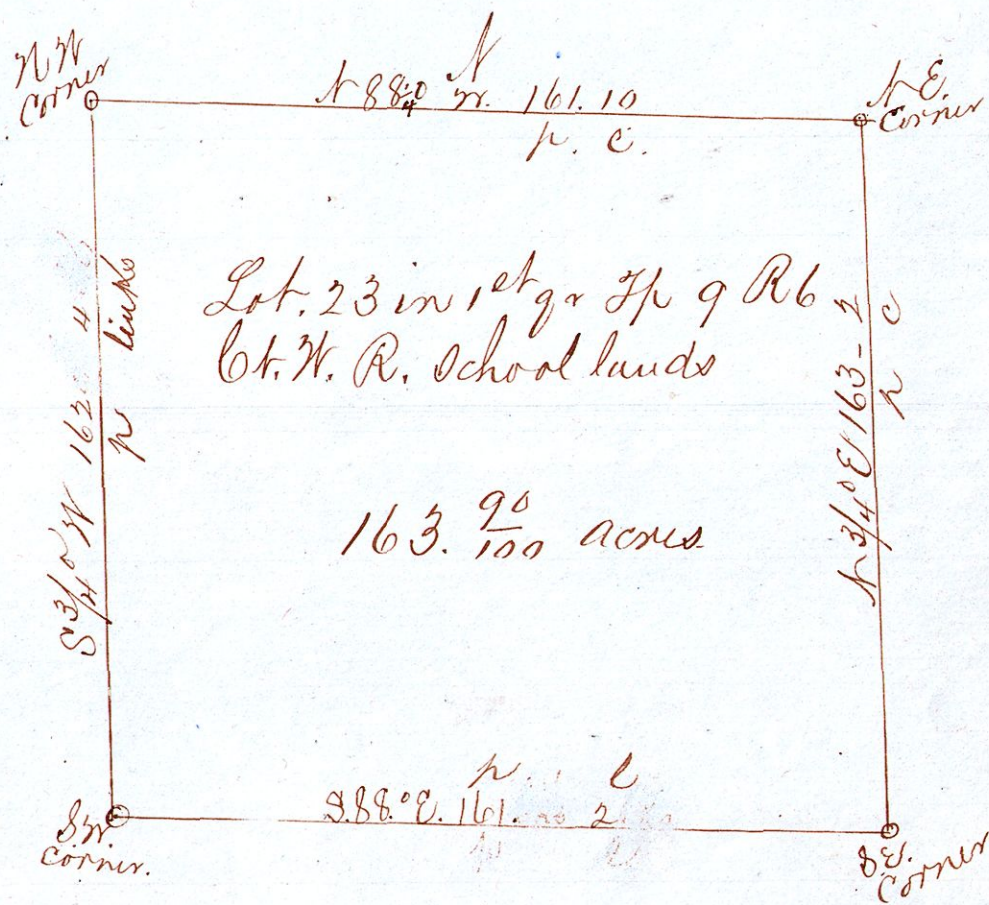 N W
Corner
N
N 88 1/4° W. 161. 10
p. l.
N E.
Corner
S 3/4° W 162 4
p links
Lot. 23 in 1st qr Tp 9 R 6
Ct. W. R. School lands
163. 90/100 acres
N 3/4° E 163 - 2
p l
p l
S. 88.° E. 161. 2
S. W.
Corner.
S. E.
Corner